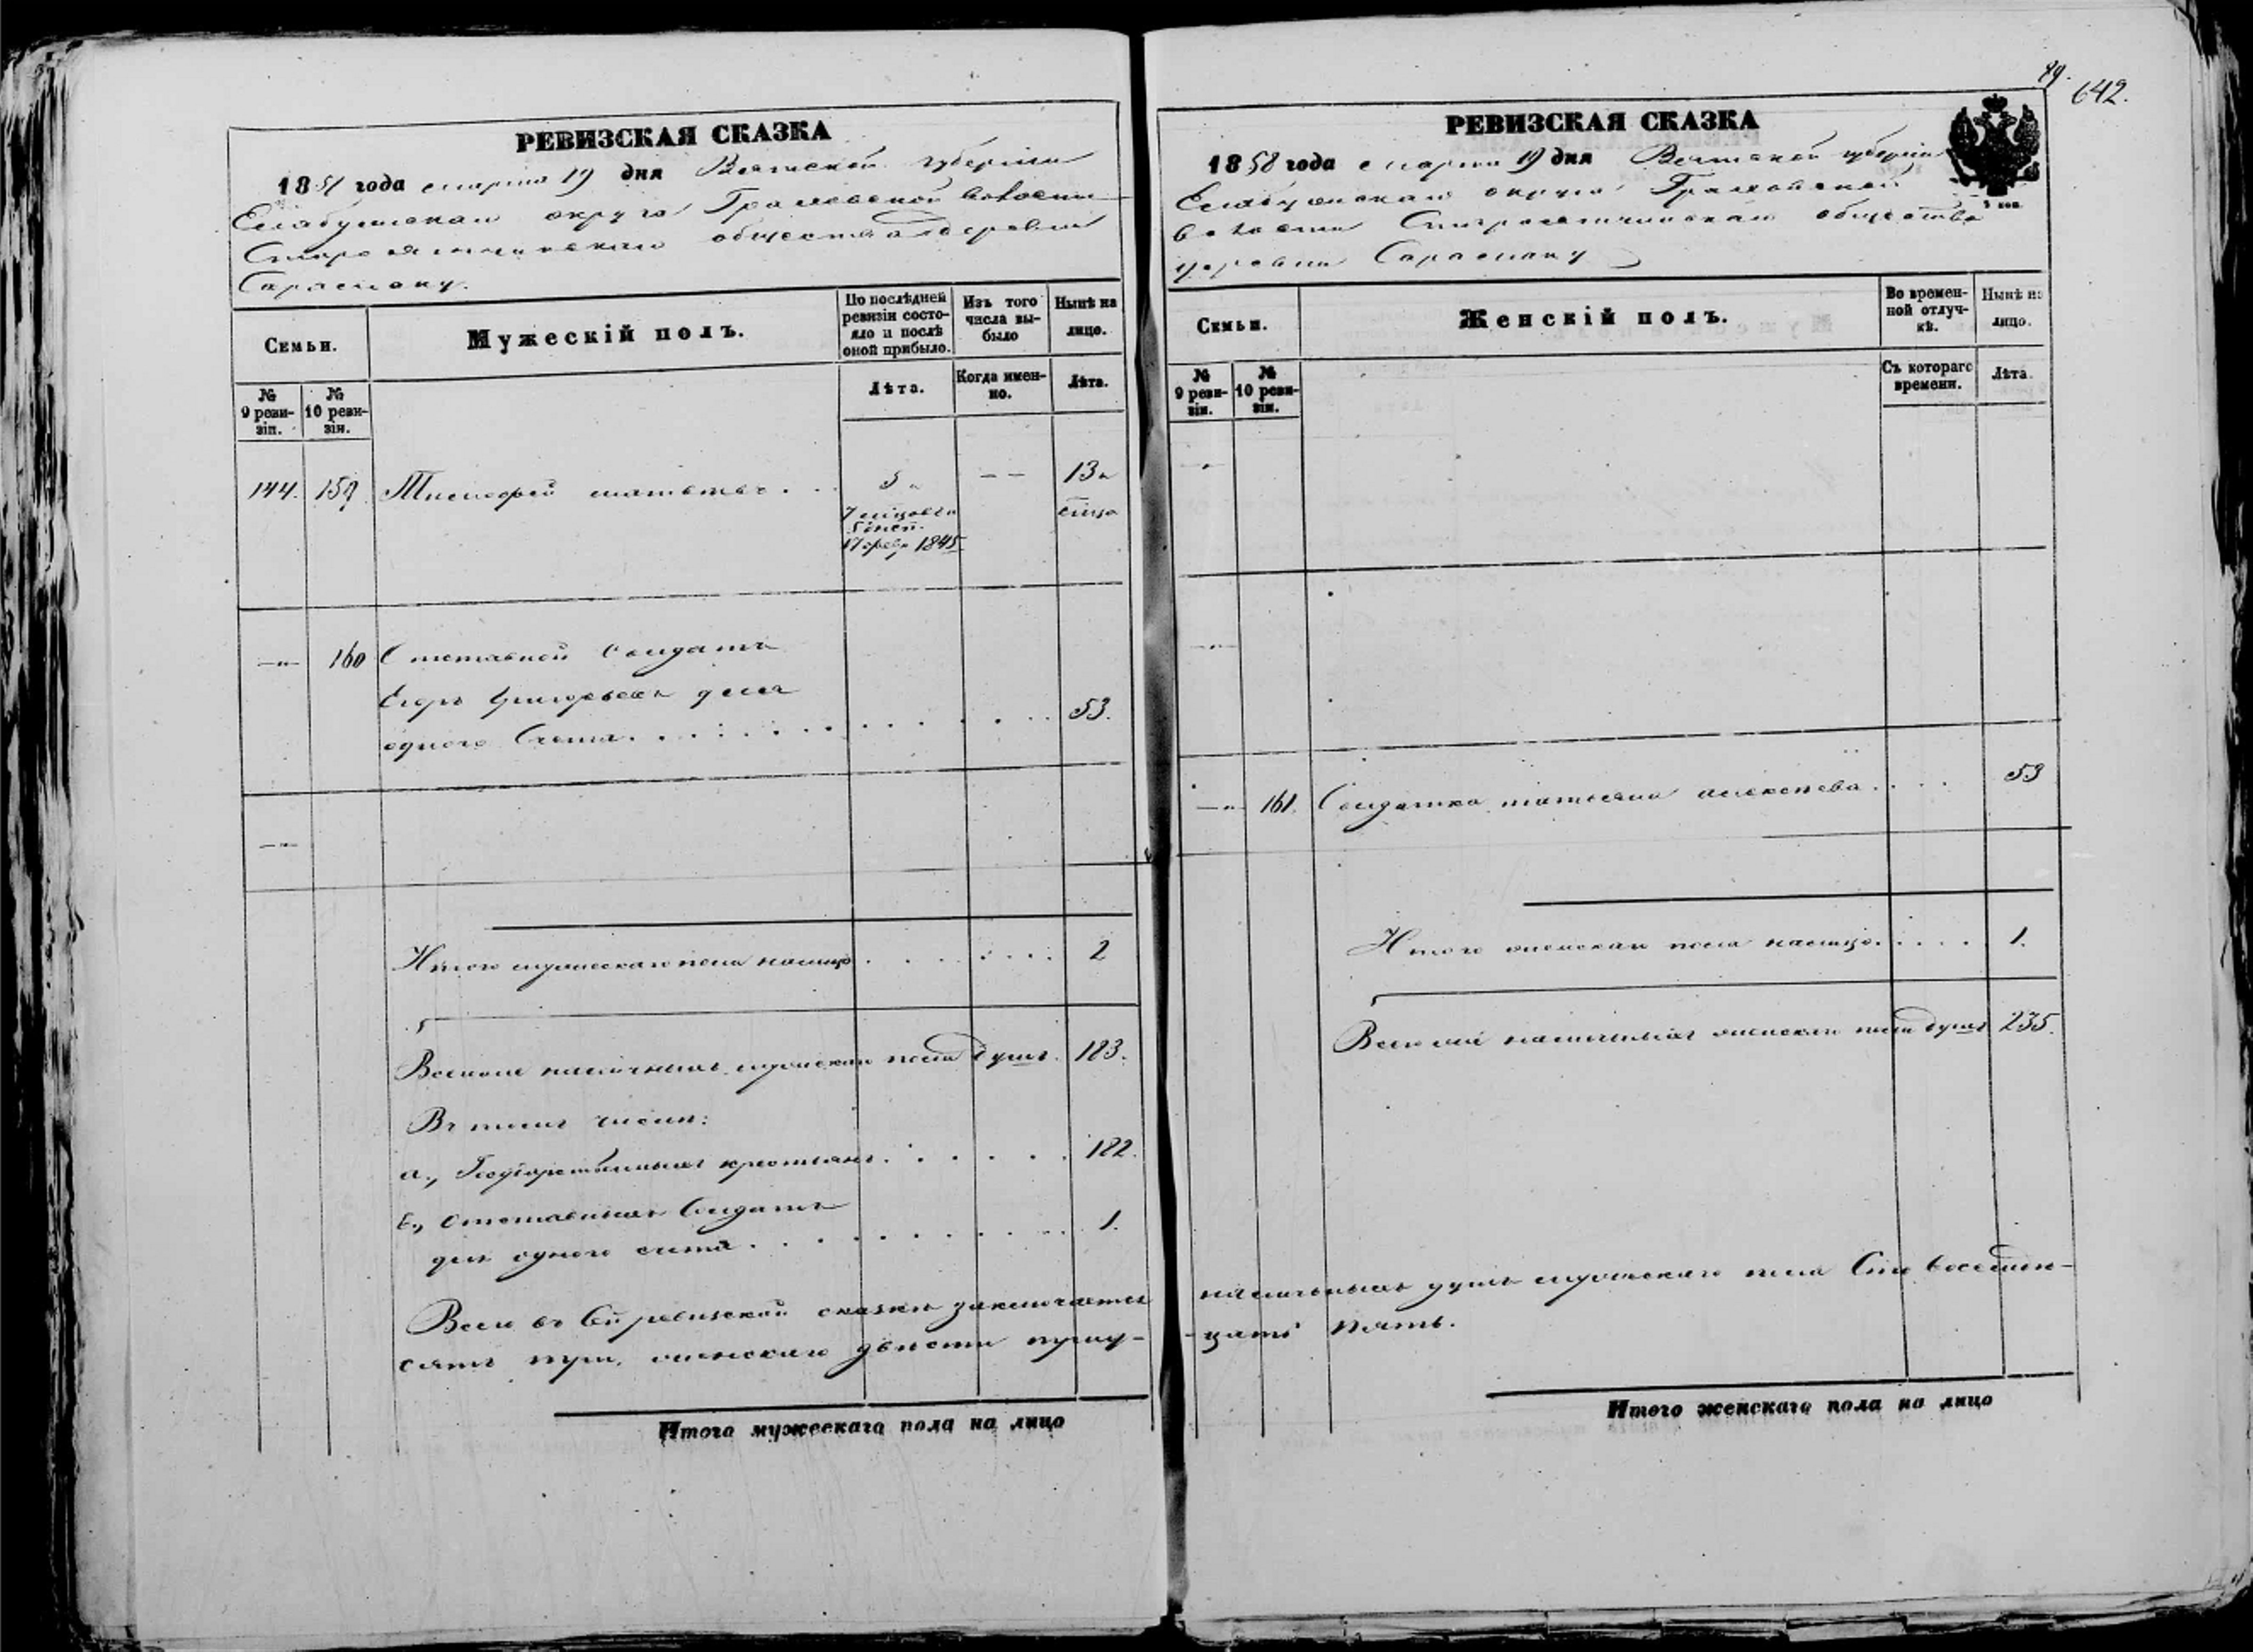 РЕВИЗСКАЯ СКАЗКА
1858 года марта 19 дня Вятской губернiи
Елабужскаго округа Граховской волости
общества деревни
Сарамаку.
Семьи.
Мужескiй полъ.
По послѣдней ревизiи состояло и послѣ оной прибыло.
Изъ того числа выбыло
Нынѣ на лицо.
№ 9 ревизiи.
№ 10 ревизiи.
Лѣта.
Когда именно.
Лѣта.
144. 159. Тимофей 5 — — 13
17 февр 1845
—"— 160 Отставной Солдатъ
Егоръ Григорьевъ для
одного Счета 53.
—"—
Итого мужескаго пола налицо 2
Всего наличныхъ мужескаго пола душъ. 183.
Въ томъ числѣ:
а., Государственныхъ крестьянъ 182.
б., Отставныхъ Солдатъ
для одного счета 1.
Всего въ сей ревизской сказкѣ заключается
сятъ три, женскаго двѣсти трид-
Итого мужескаго пола на лицо
89.
642.
РЕВИЗСКАЯ СКАЗКА
1858 года марта 19 дня Вятской губернiи
Елабужскаго округа Граховской
волости общества
деревни Сарамаку
Семьи.
Женскiй полъ.
Во временной отлучкѣ.
Нынѣ на лицо.
№ 9 ревизiи.
№ 10 ревизiи.
Съ котораго времени.
Лѣта.
—"— 161. Солдатка татьяна алексѣева 53
Итого женскаго пола налицо 1.
Всего наличныхъ женскаго пола душъ 235.
наличныхъ душъ мужескаго пола Сто восемде-
-цать пять.
Итого женскаго пола на лицо